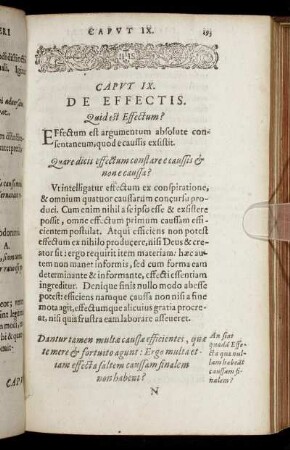 CAPVT IX.
CAPVT IX.
DE EFFECTIS.
Quid est Effectum?
EFfectum est argumentum absolute con-
sentaneum, quod e caussis exsistit.
Quare dicis effectum constare e caussis &
non e caussa?
Vt intelligatur effectum ex conspiratione,
& omnium quatuor caussarum concursu pro-
duci. Cum enim nihil a se ipso esse & exsistere
possit, omne effectum primum caussam effi-
cientem postulat. Atqui efficiens non potest
effectum ex nihilo producere, nisi Deus & cre-
ator sit: ergo requirit item materiam: hæc au-
tem non manet informis, sed cum forma eam
determinante & informante, effecti essentiam
ingreditur. Denique sinit nullo modo abesse
potest efficiens namque caussa non nisi a fine
mota agit, effectumque alicuius gratia procre-
at, nisi quis frustra eam laborare asseueret.
Dantur tamen multæ caussæ efficientes, quæ
te mere & fortuito agunt: Ergo multa et-
iam effecta saltem caussam finalem
non habent?
An sint
quædã Effe-
cta quæ nul-
lam habeãt
caussam fi-
nalem?
N